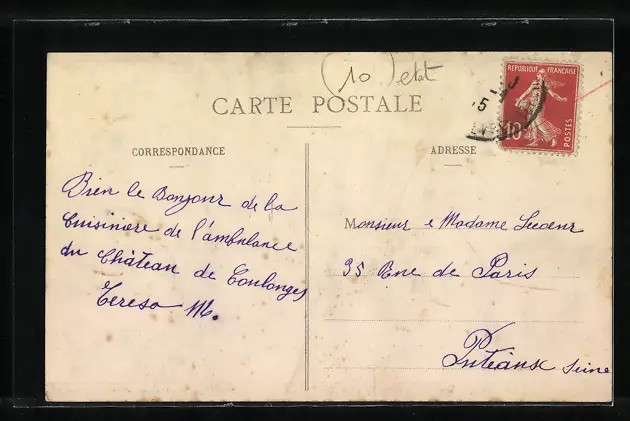 (10 etat
CARTE POSTALE
CORRESPONDANCE
ADRESSE
REPUBLIQUE FRANÇAISE
POSTES
10
15
Bien le Bonjour de la
Cuisiniere de l'ambulance
du Château de Coulonges
Tereso M.
Monsieur e Madame Lecoeur
35 Rue de Paris
Puteaux Seine